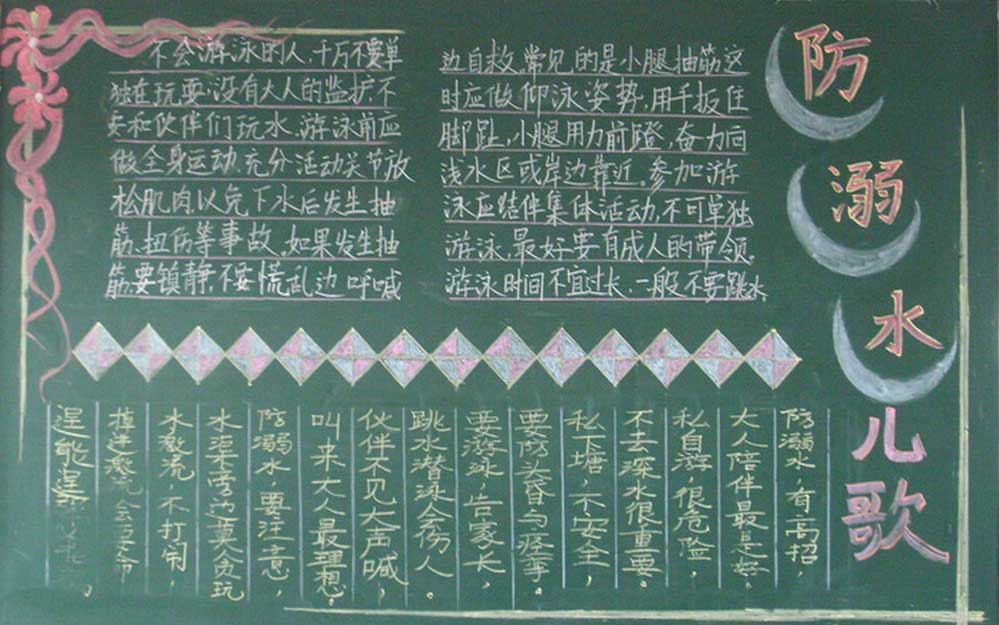 防溺水儿歌
不会游泳的人,千万不要单
独在玩耍.没有大人的监护,不
要和伙伴们玩水。游泳前应
做全身运动.充分活动关节放
松肌肉.以免下水后发生抽
筋、扭伤等事故。如果发生抽
筋要镇静,不要慌乱边呼喊
边自救.常见的是小腿抽筋这
时应做仰泳姿势,用手扳住
脚趾,小腿用力前蹬,奋力向
浅水区或岸边靠近。参加游
泳应结伴集体活动,不可单独
游泳,最好要有成人的带领。
游泳时间不宜过长,一般不要跳水
防溺水,有高招,
大人陪伴最是好。
私自游,很危险,
不去深水很重要。
私下塘,不安全,
要防头昏与痉挛。
要游泳,告家长,
跳水潜泳会伤人。
伙伴不见大声喊,
叫来大人最理想。
防溺水,要注意,
水莫贪玩
水激流,不打闹,
掉进
逞能逞